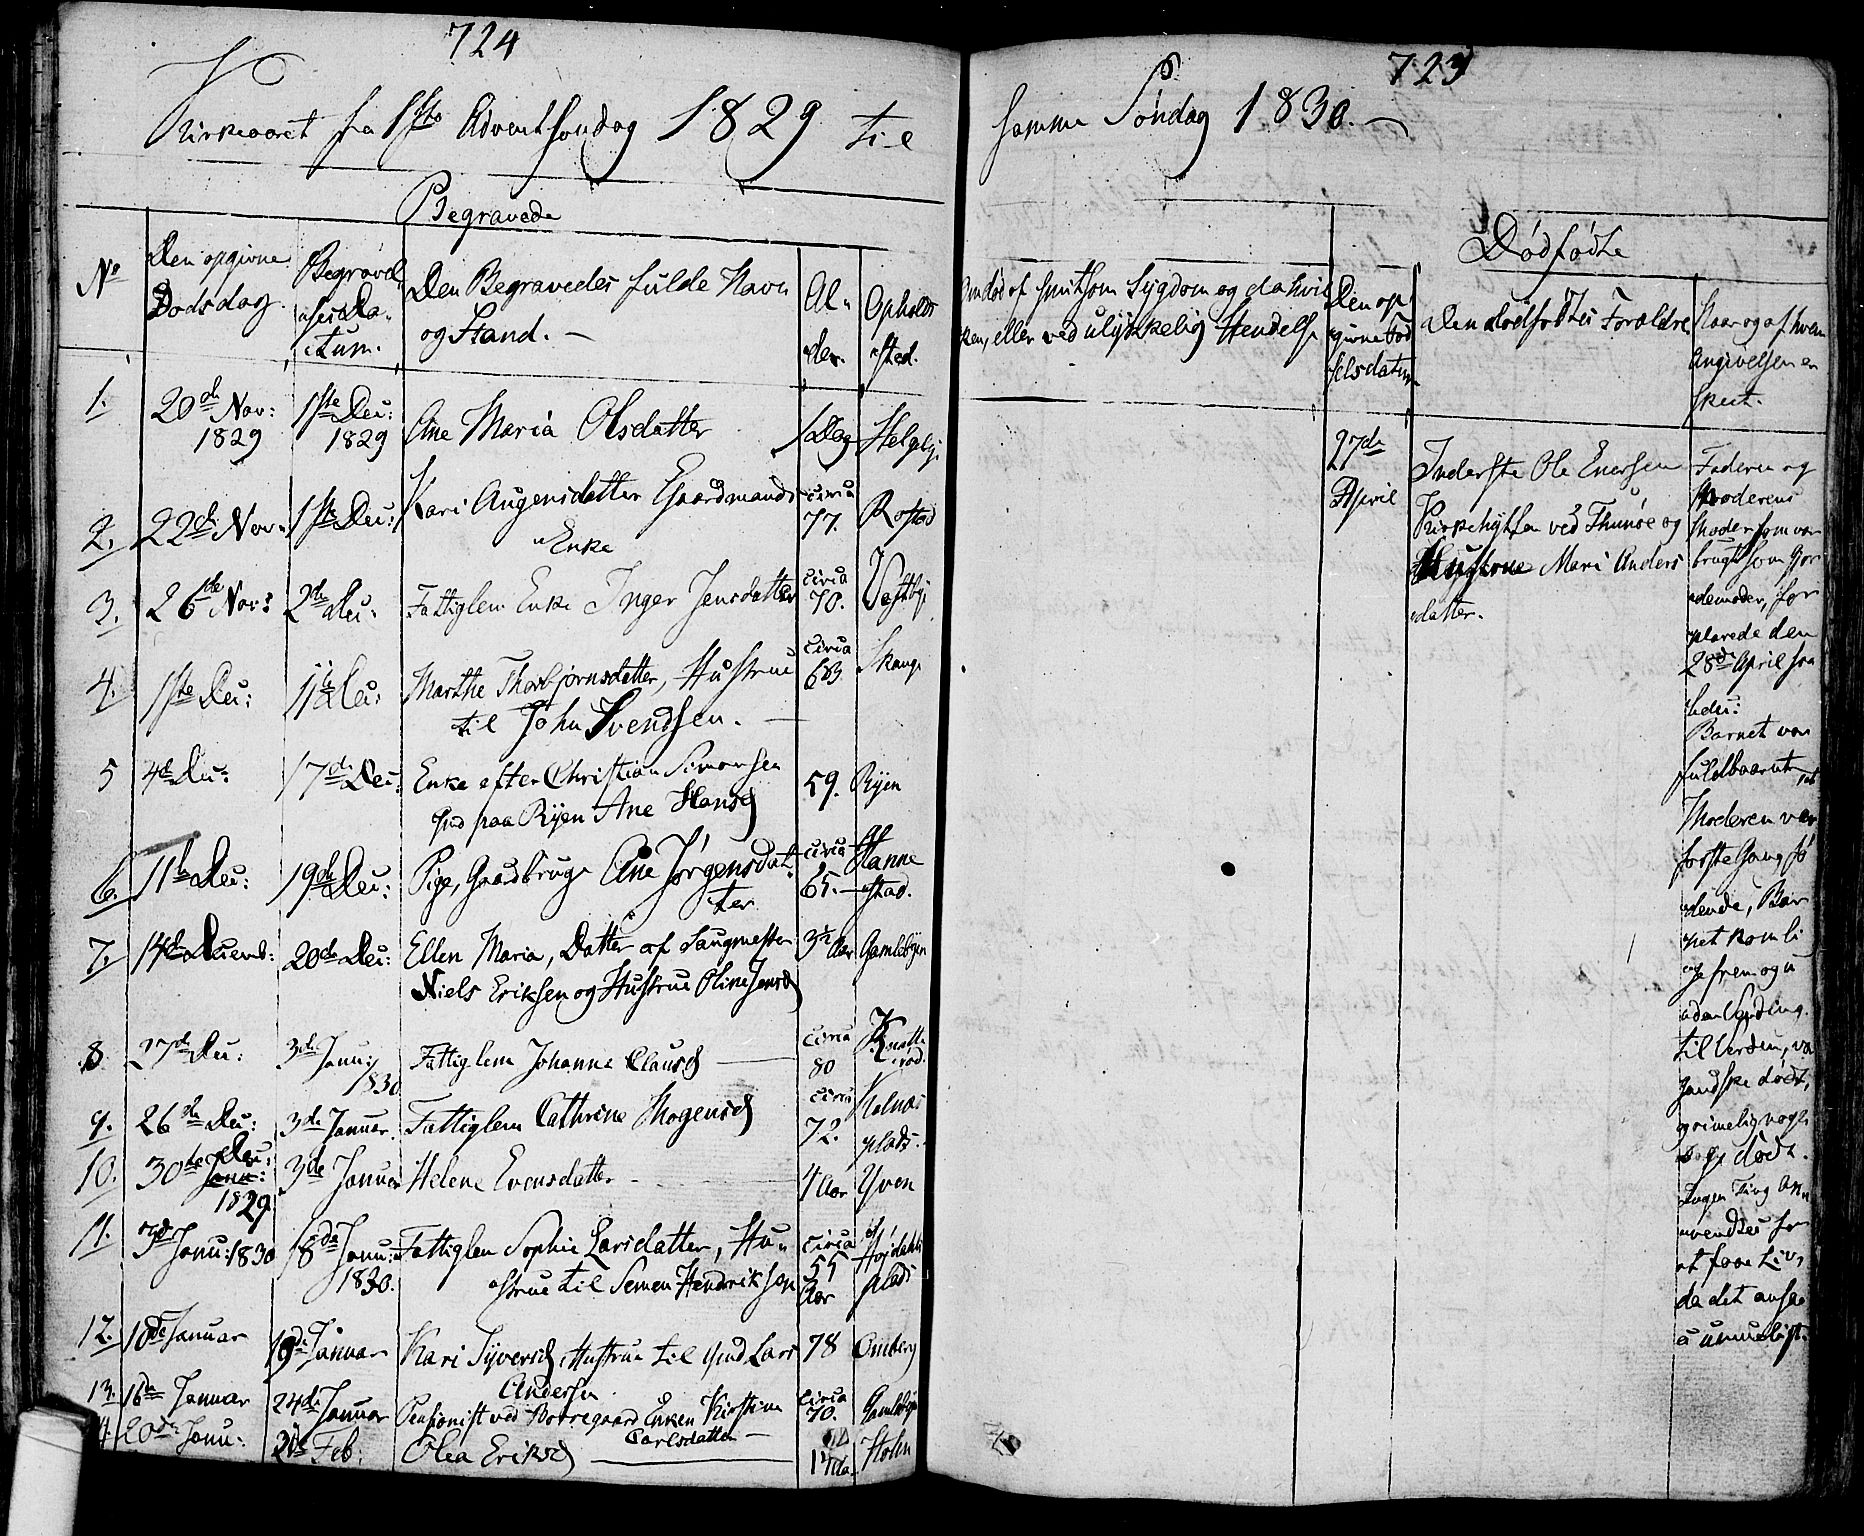 724
Kirkeaaret fra 1ste Adventsøndag 1829 til
Begravede
No
Den opgivne
Dødsdag
Begravel-
sesda-
tum.
Den Begravedes fulde Navn
og Stand. —
Al-
der.
Opholds
sted.
1.
20de Nov:
1829
1ste Dec:
1829
Ane Maria Olsdatter
1 Dag
Helgeby
2.
22de Nov:
1ste Dec:
Kari Augensdatter Gaardmands
Enke
circa
77.
Rostad
3.
26de Nov:
2de Dec:
Fattiglem Enke Inger Jensdatter
circa
70.
Vestby
4.
1ste Dec:
11te Dec:
Marthe Thorbjørnsdatter, Hustrue
til John Svendsen. —
circa
63
5
4de Dec:
17de Dec:
Enke efter Christian Simonsen
Gud paa Ryen Ane Hansd
59.
Ryen
6.
11te Dec:
19de Dec:
Pige, Gaardbruge Ane Jørgensdat
ter
circa
65. —
Hanne
stad.
7.
14de Decemb:
20de Dec:
Ellen Maria, Datter af Saugmester
Niels Eriksen og Hustrue Oline Jensd
3½ Aar
Gamlebyen
8.
27de Dec:
3de Janu:
1830
Fattiglem Johanne Clausd —
circa
80
Knatte
rød.
9.
26de Dec:
3de Januar.
Fattiglem Cathrine Mogensd
circa
72.
Kolnæs
plads.
10.
30te Dec:
Janu:
1829
3de Januar
Helene Evensdatter
4 Aar
Yven
11.
3de Janu: 1830
18de Janu:
1830.
Fattiglem Sophie Larsdatter, Hu-
strue til Semen Hendriksen
circa
55
Aar
Højdahls
plads
12.
10de Januar
19de Januar
Kari Syversd Hustrue til Gud Lars
Andersen
78
Omberg
13.
16de Januar
24de Januar
Pensionist ved Borregaard Enken Kirstine
Carlsdatter —
circa
70.
Gamlebyen
14.
20de Janu:
Feb.
Olea Eriksd —
14 da
Holen
723
samme Søndag 1830. —
Om død af smitsom Sygdom og da hvil
ken, eller ved ulykkelig Hendelse
Dødfødte
Den op
givne Fød
selsdatum
Den dødfødtes Forældre
Naar og af hvem
Angivelsen er
skeet.
27de
April
Inderste Ole Enersen
Kirkehytten ved Thunøe og
Hustrue Mari Anders
datter.
Faderen og
Moderens
Moder som var
brugt som Gjor
demoder, for
klarede den
28de April saa
ledes:
Barnet var
fuldbaaret
Moderen var
første Gang fø
dende, Bar
net kom li
ge frem og u
den Vending
til Verden, va
gandske dødt,
rimelig nogle
dødt.
Ingen Ting an
vendtes for
at faae Liv,
da det ansae
s umueligt.